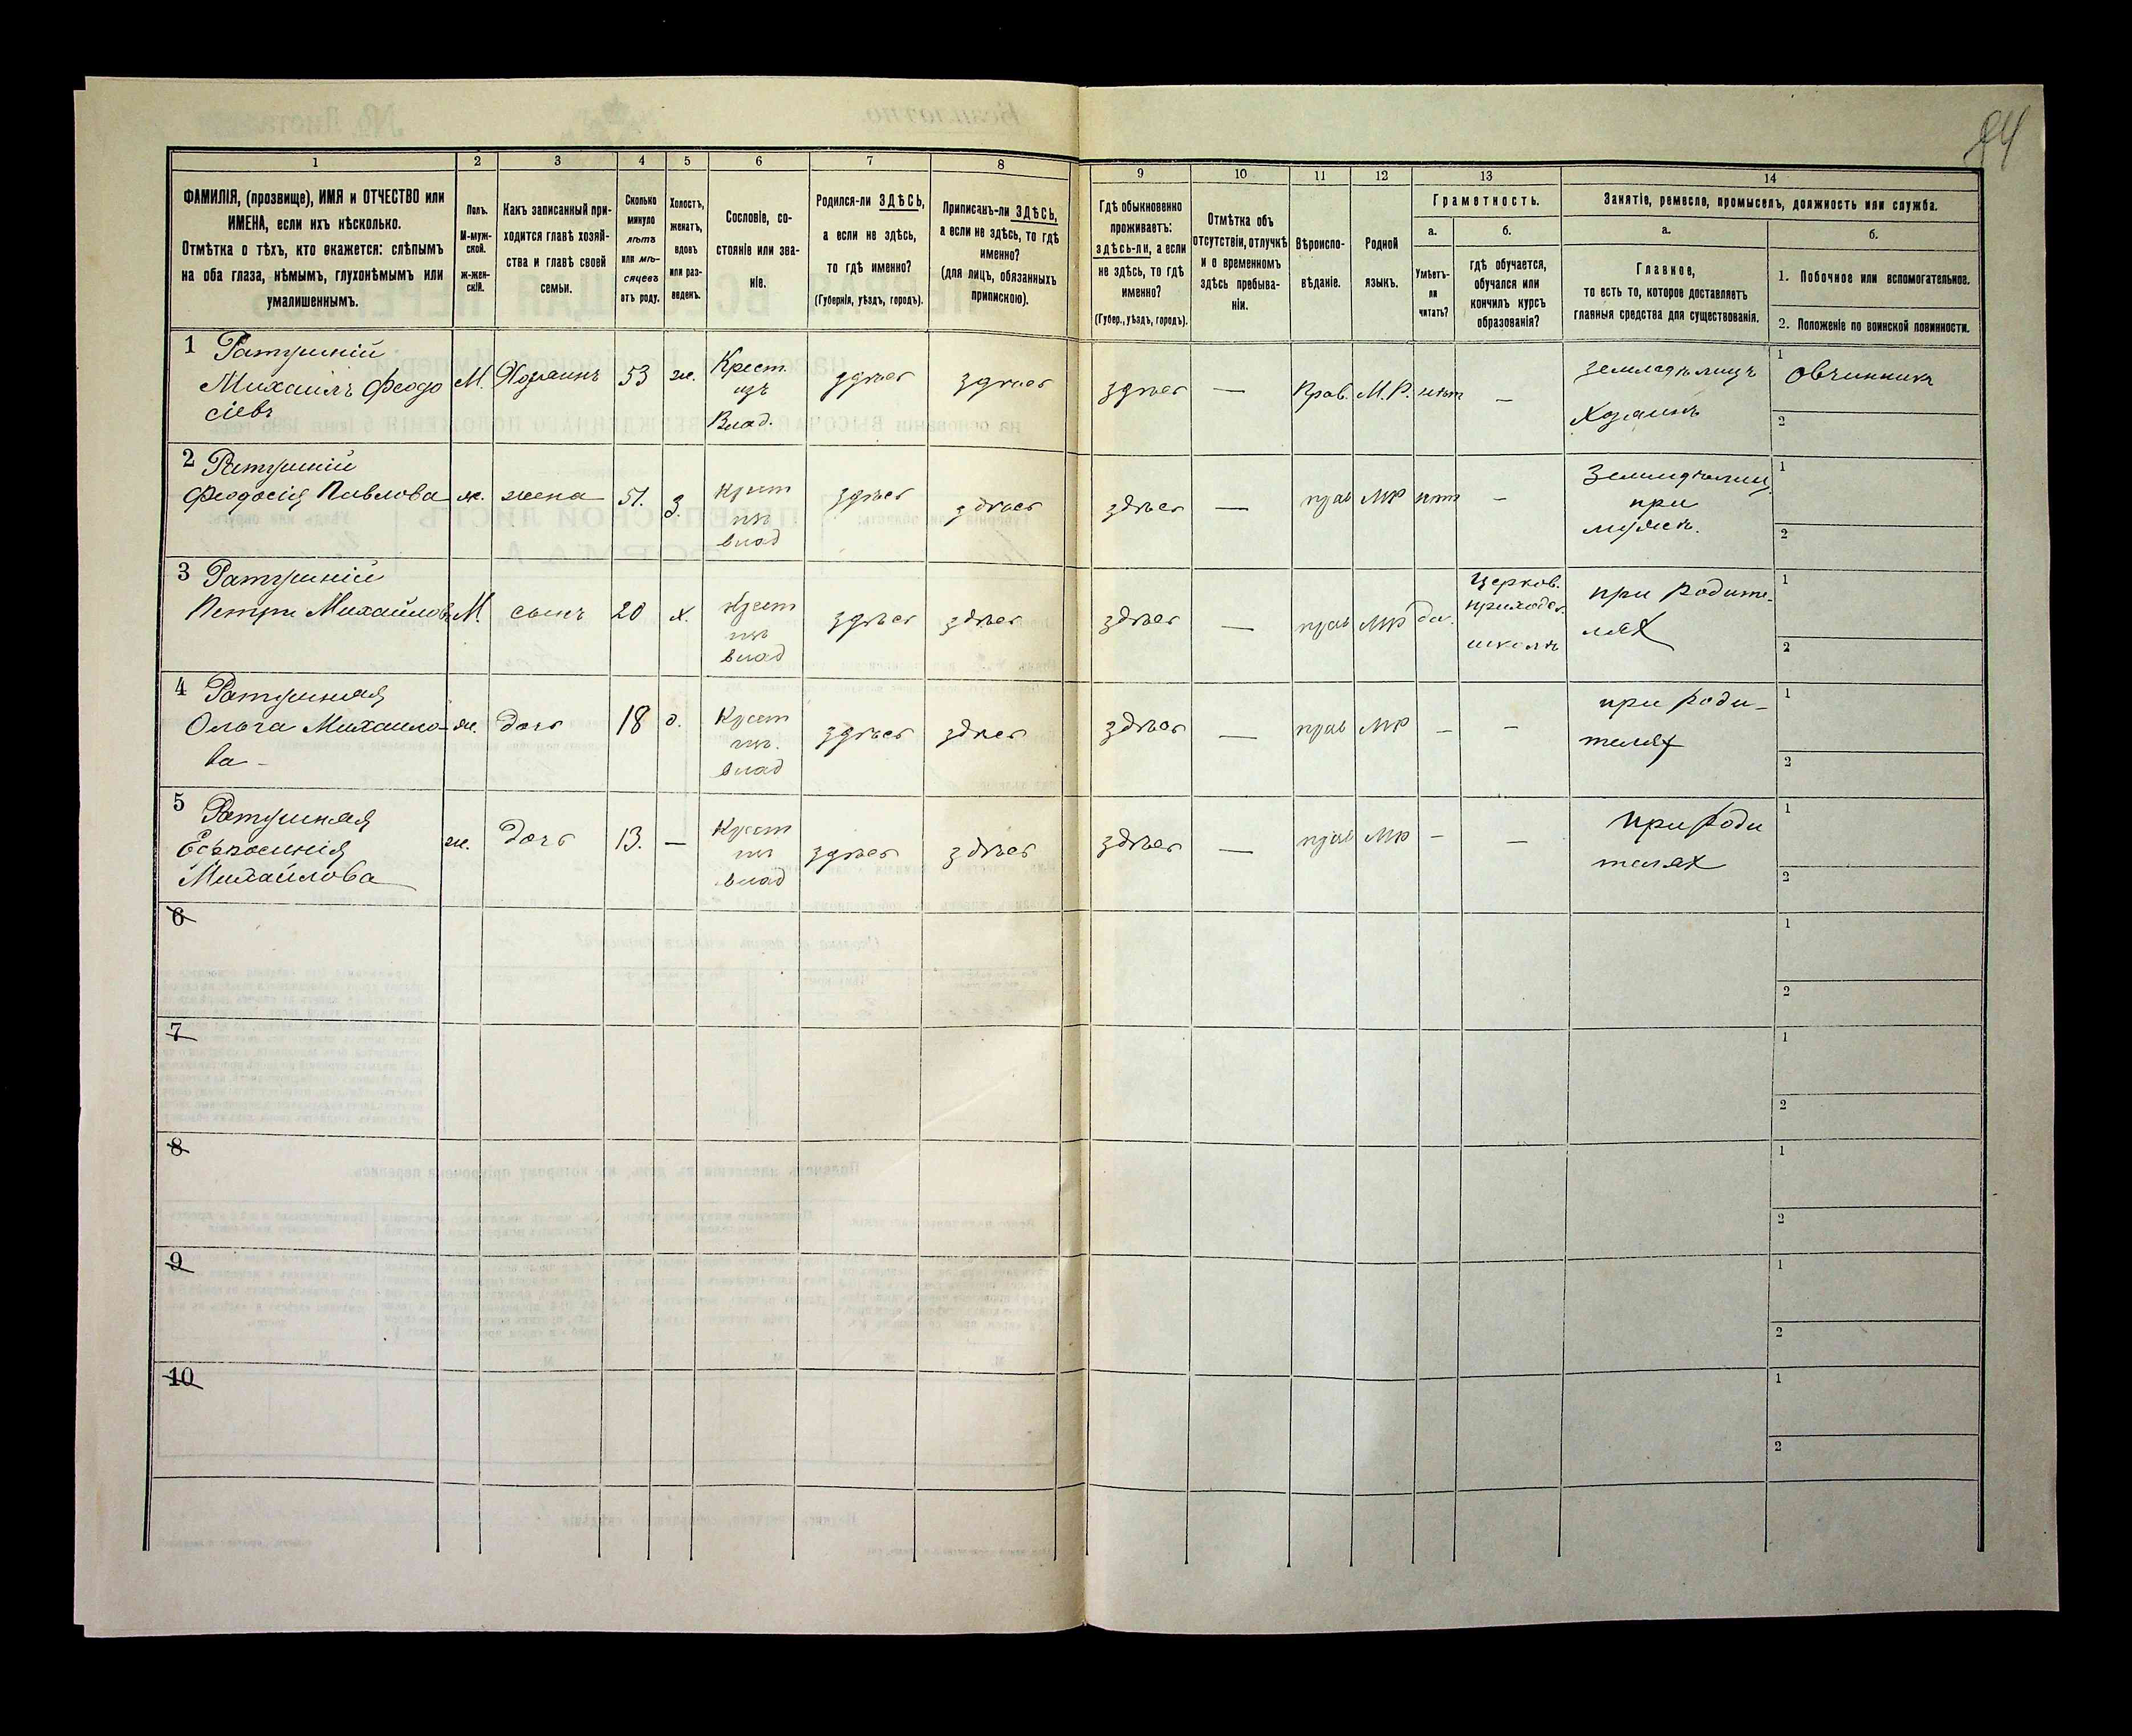 84
1 2 3 4 5 6 7 8 9 10 11 12 13 14
ФАМИЛІЯ, (прозвище), ИМЯ и ОТЧЕСТВО или
ИМЕНА, если ихъ нѣсколько.
Отмѣтка о тѣхъ, кто окажется: слѣпымъ
на оба глаза, нѣмымъ, глухонѣмымъ или
умалишеннымъ.
Полъ.
М-муж-
ской.
Ж-жен-
скій.
Какъ записанный при-
ходится главѣ хозяй-
ства и главѣ своей
семьи.
Сколько
минуло
лѣтъ
или мѣ-
сяцевъ
отъ роду.
Холостъ,
женатъ,
вдовъ
или раз-
веденъ.
Сословіе, со-
стояніе или зва-
ніе.
Родился-ли ЗДѢСЬ,
а если не здѣсь,
то гдѣ именно?
(Губернія, уѣздъ, городъ).
Приписанъ-ли ЗДѢСЬ,
а если не здѣсь, то гдѣ
именно?
(для лицъ, обязанныхъ
припискою).
Гдѣ обыкновенно
проживаетъ:
здѣсь-ли, а если
не здѣсь, то гдѣ
именно?
(Губер., уѣздъ, городъ).
Отмѣтка объ
отсутствіи, отлучкѣ
и о временномъ
здѣсь пребыва-
ніи.
Вѣроиспо-
вѣданіе.
Родной
языкъ.
Грамотность.
а.
Умѣетъ-
ли
читать?
б.
гдѣ обучается,
обучался или
кончилъ курсъ
образованія?
Занятіе, ремесло, промыселъ, должность или служба.
а.
Главное,
то есть то, которое доставляетъ
главныя средства для существованія.
б.
1. Побочное или вспомогательное.
2. Положеніе по воинской повинности.
1 Ратушній
Михаилъ Феодо
сіевъ
М. Хозяинъ 53 ж. Крест. изъ Влад. здѣсь здѣсь здѣсь — Прав. М.Р. нѣтъ —
земледѣлецъ
Хозяинъ
1 Овчинникъ
2
2 Ратушній
Феодосія Павлова
ж. жена 51. З. крест изъ влад здѣсь здѣсь здѣсь — прав МР нѣт —
Земледѣлец
при
мужѣ.
1
2
3 Ратушній
Петръ Михайловъ
М. сынъ 20 х. крест изъ влад здѣсь здѣсь здѣсь — прав МР да.
Церков.
приходс.
школѣ
при родите-
лях
1
2
4 Ратушная
Ольга Михаило-
ва -
ж. дочь 18 д. Крест изъ. влад здѣсь здѣсь здѣсь — прав МР — —
при роди-
телях
1
2
5 Ратушная
Михайлова
ж. Дочь 13. — Крест изъ влад здѣсь здѣсь здѣсь — прав МР — —
при роди
телях
1
2
6
1
2
7
1
2
8
1
2
9
1
2
10
1
2